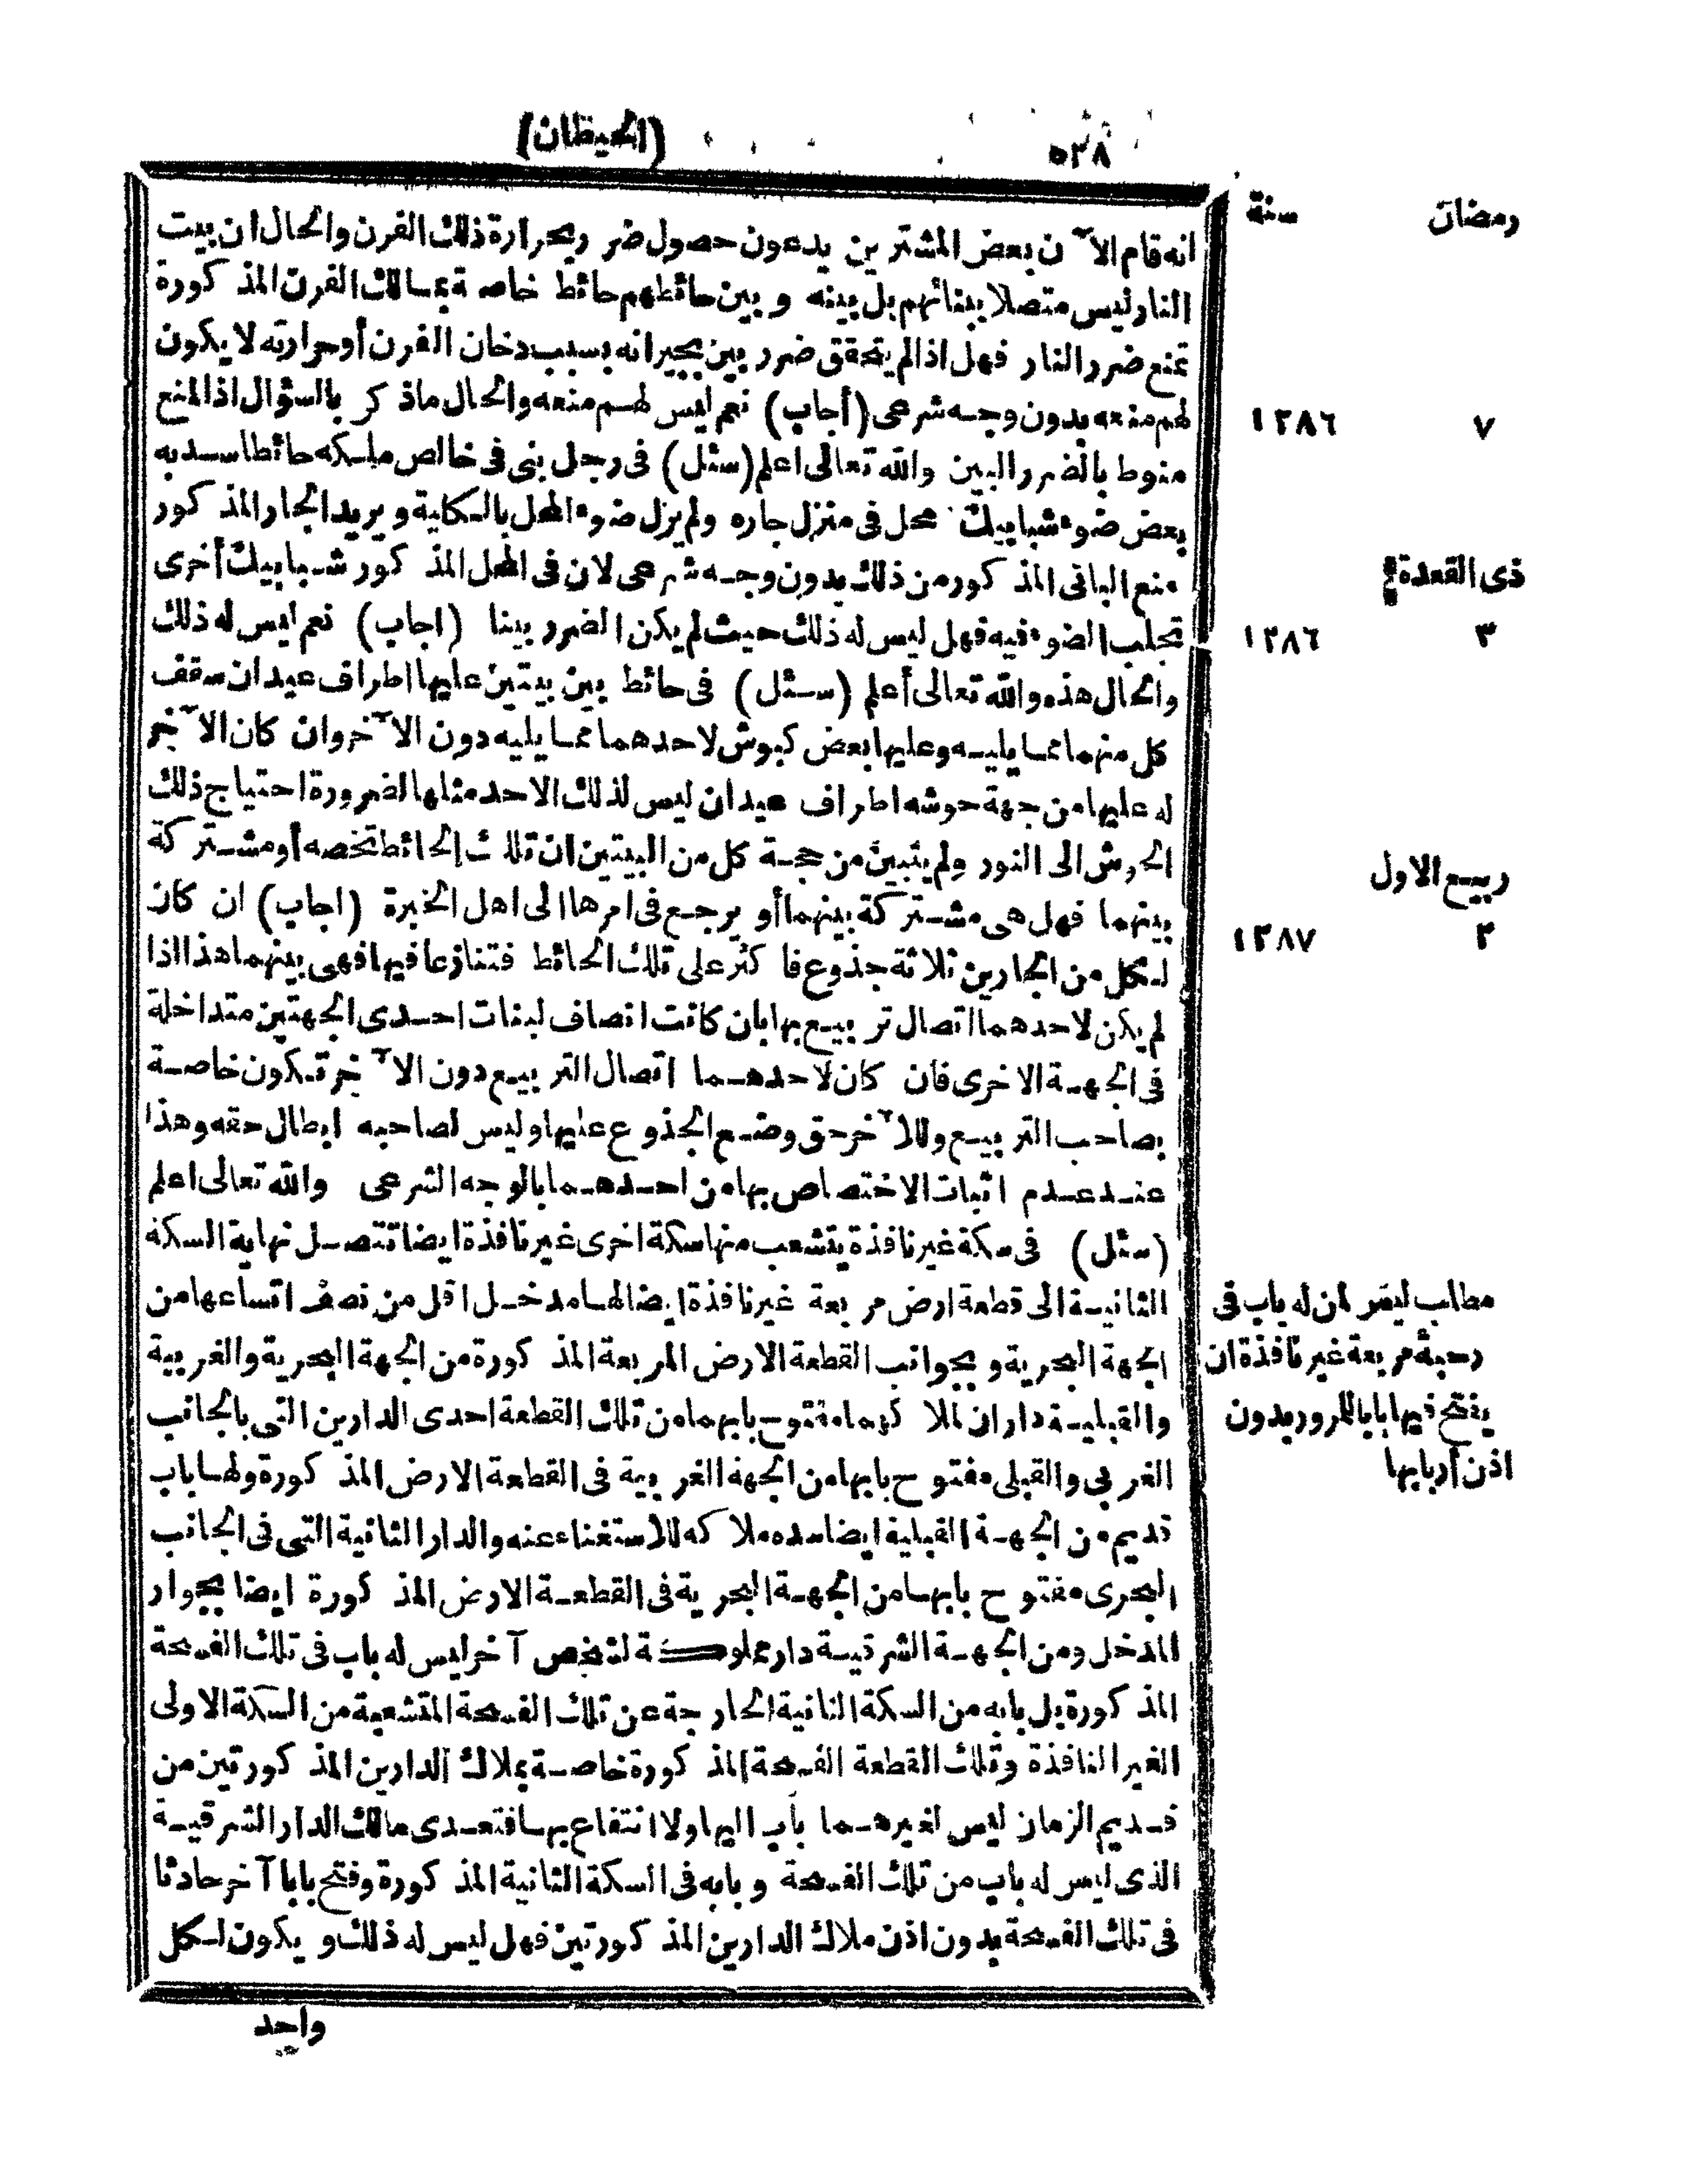 ٥٣٨
(الحيطان)
انه قام الآن بعض المشترين يدعون حصول ضرر بحرارة ذلك الفرن والحال ان بيت
النار ليس متصلا ببنائهم بل بينه وبين حائطهم حائط خاصة بمالك الفرن المذكورة
تمنع ضرر النار فهل اذا لم يتحقق ضرر بين بجيرانه بسبب دخان الفرن أو حرارته لا يكون
لهم منعه بدون وجه شرعى (أجاب) نعم ليس لهم منعه والحال ماذكر بالسؤال اذ المنع
منوط بالضرر البين والله تعالى اعلم (سئل) فى رجل بنى فى خالص ملكه حائطا سد به
بعض ضوء شبابيك محل فى منزل جاره ولم يزل ضوء المحل بالكلية ويريد الجار المذكور
منع البانى المذكور من ذلك بدون وجه شرعى لان فى المحل المذكور شبابيك أخرى
تجلب الضوء فيه فهل ليس له ذلك حيث لم يكن الضرر بينا (اجاب) نعم ليس له ذلك
والحال هذه والله تعالى أعلم (سئل) فى حائط بين بيتين عليها اطراف عيدان سقف
كل منهما مما يليه وعليها بعض كبوش لاحدهما مما يليه دون الآخر وان كان الآخر
له عليها من جهة حوشه اطراف عيدان ليس لذلك الاحد مثلها لضرورة احتياج ذلك
الحوش الى النور ولم يتبين من حجة كل من البيتين ان تلك الحائط تخصه أو مشتركة
بينهما فهل هى مشتركة بينهما أو يرجع فى امرها الى اهل الخبرة (اجاب) ان كان
لكل من الجارين ثلاثة جذوع فاكثر على تلك الحائط فتنازعا فيها فهى بينهما هذا اذا
لم يكن لاحدهما اتصال تربيع بها بان كانت انصاف لبنات احدى الجهتين متداخلة
فى الجهة الاخرى فان كان لاحدهما اتصال التربيع دون الآخر تكون خاصة
بصاحب التربيع وللآخر حق وضع الجذوع عليها وليس لصاحبه ابطال حقه وهذا
عند عدم اثبات الاختصاص بها من احدهما بالوجه الشرعى والله تعالى اعلم
(سئل) فى سكة غير نافذة يتشعب منها سكة اخرى غير نافذة ايضا تتصل نهاية السكة
الثانية الى قطعة ارض مربعة غير نافذة ايضا لها مدخل اقل من نصف اتساعها من
الجهة البحرية وبجوانب القطعة الارض المربعة المذكورة من الجهة البحرية والغربية
والقبلية داران لملاكهما مفتوح بابهما من تلك القطعة احدى الدارين التى بالجانب
الغربى والقبلى مفتوح بابها من الجهة الغربية فى القطعة الارض المذكورة ولها باب
قديم من الجهة القبلية ايضا سده ملاكه للاستغناء عنه والدار الثانية التى فى الجانب
البحرى مفتوح بابها من الجهة البحرية فى القطعة الارض المذكورة ايضا بجوار
المدخل ومن الجهة الشرقية دار مملوكة لشخص آخر ليس له باب فى تلك الفسحة
المذكورة بل بابه من السكة الثانية الخارجة عن تلك الفسحة المتشعبة من السكة الاولى
الغير النافذة وتلك القطعة الفسحة المذكورة خاصة بملاك الدارين المذكورتين من
قديم الزمان ليس لغيرهما باب اليها ولا انتفاع بها فتعدى مالك الدار الشرقية
الذى ليس له باب من تلك الفسحة وبابه فى السكة الثانية المذكورة وفتح بابا آخر حادثا
فى تلك الفسحة بدون اذن ملاك الدارين المذكورتين فهل ليس له ذلك ويكون لكل
واحد
رمضان سنة
٧ ١٢٨٦
ذى القعدة
٣ ١٢٨٦
ربيع الاول
٢ ١٢٨٧
مطلب ليس لمن له باب فى
رحبة مربعة غير نافذة ان
يفتح فيها بابا للمرور بدون
اذن أربابها